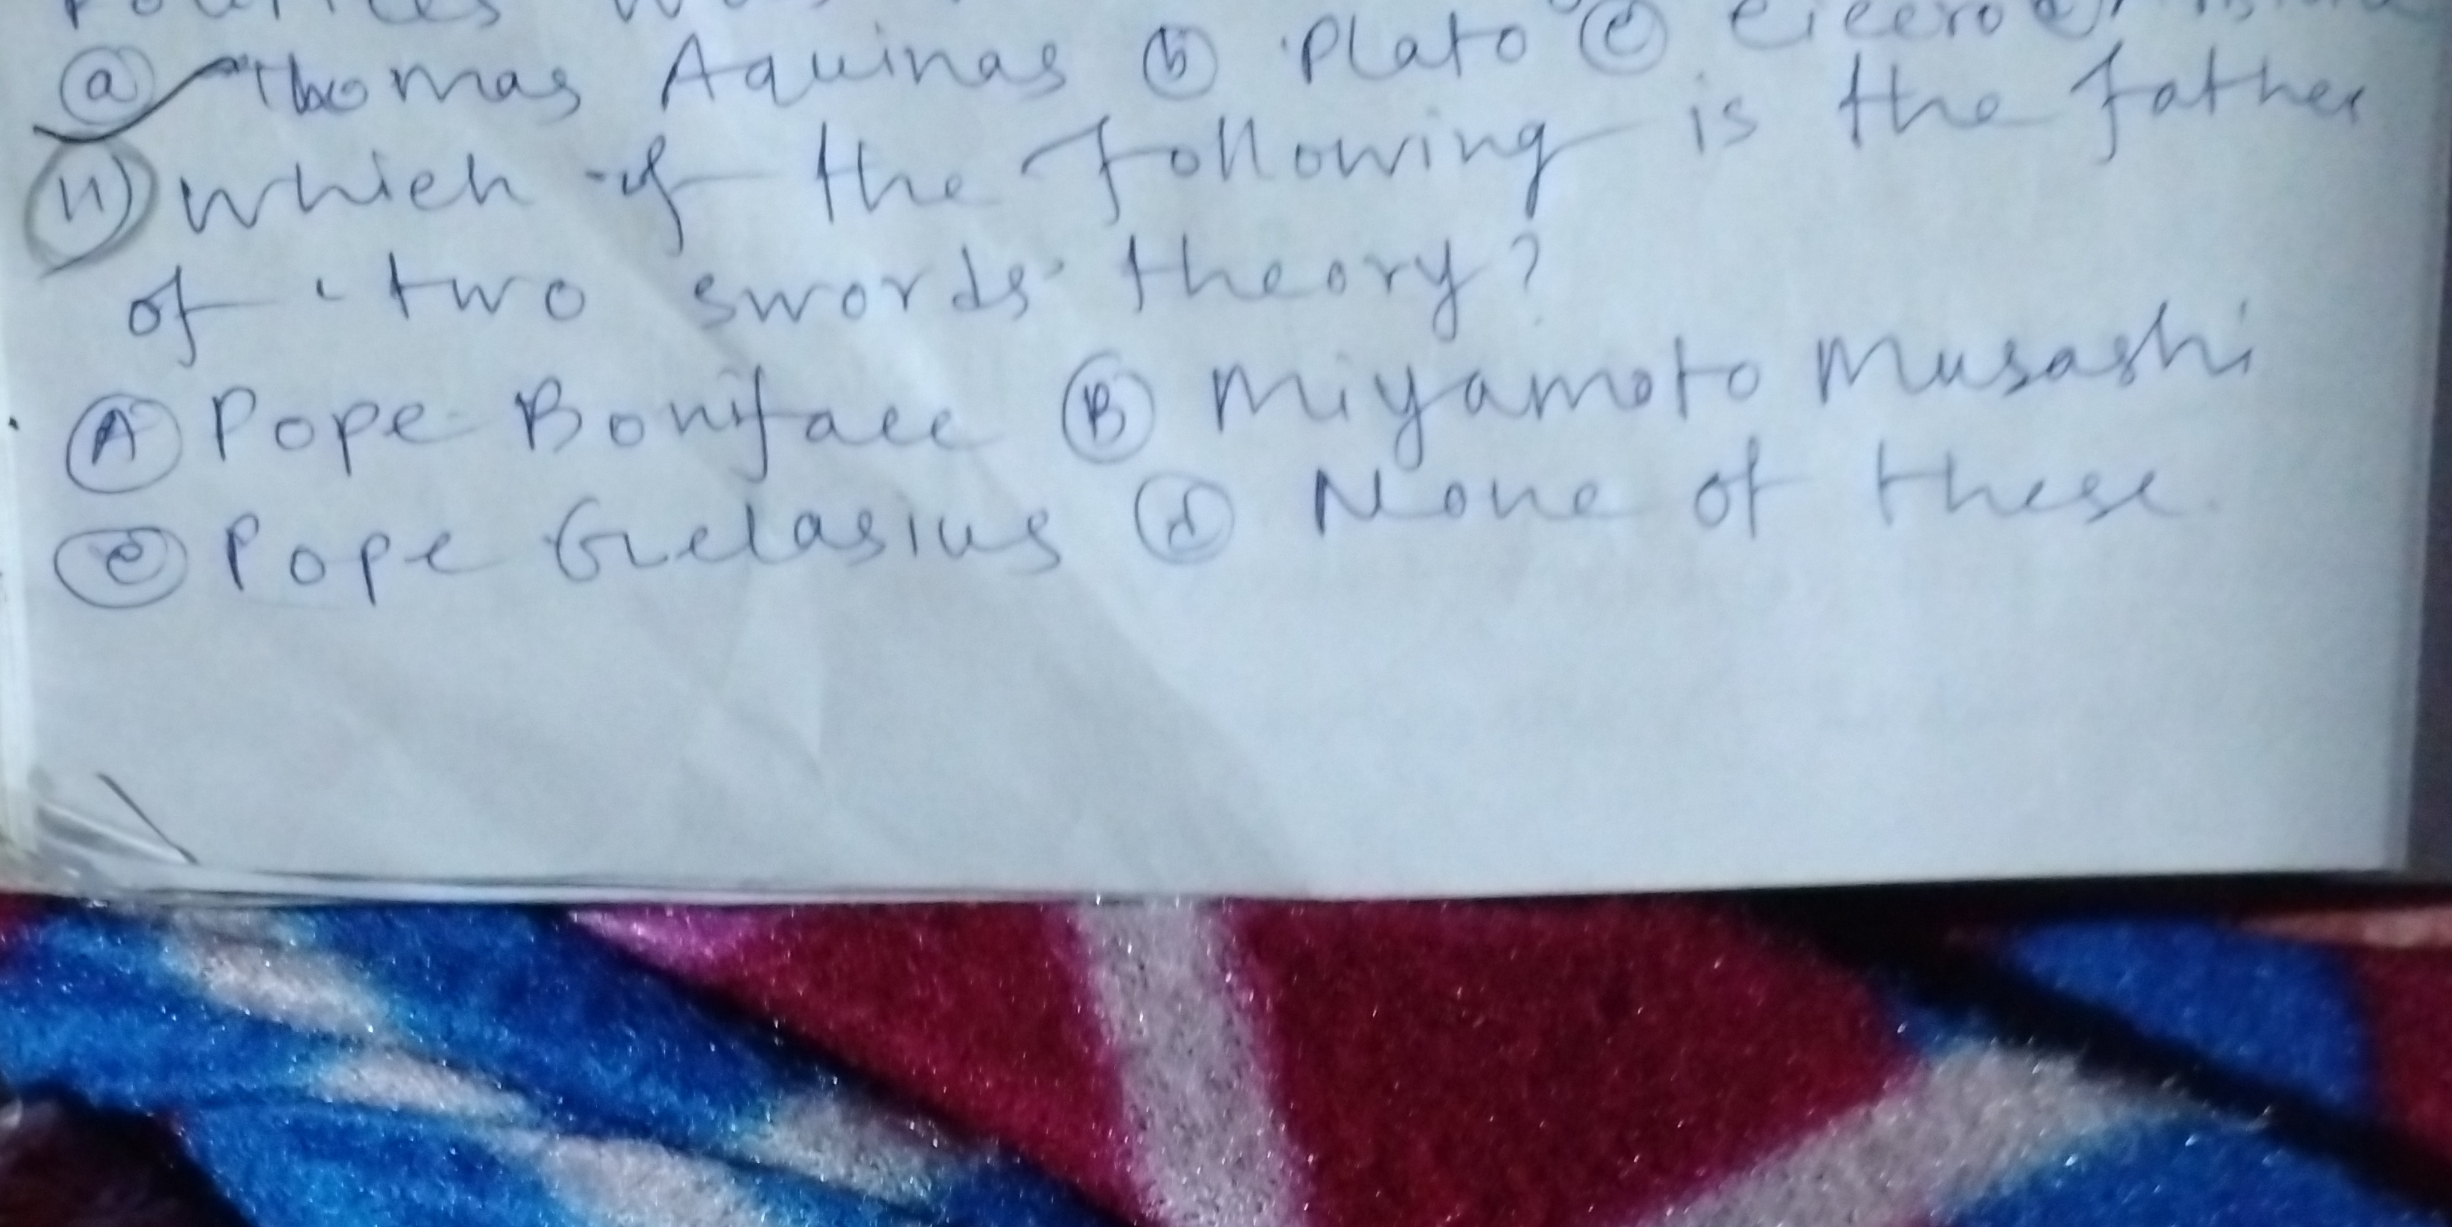 ⓐ Thomas Aquinas ⓑ Plato ⓒ Cicero
11) which of the following is the father
of 'two swords' theory?
Ⓐ Pope Boniface Ⓑ Miyamoto Musashi
ⓒ Pope Gelasius ⓓ None of these.